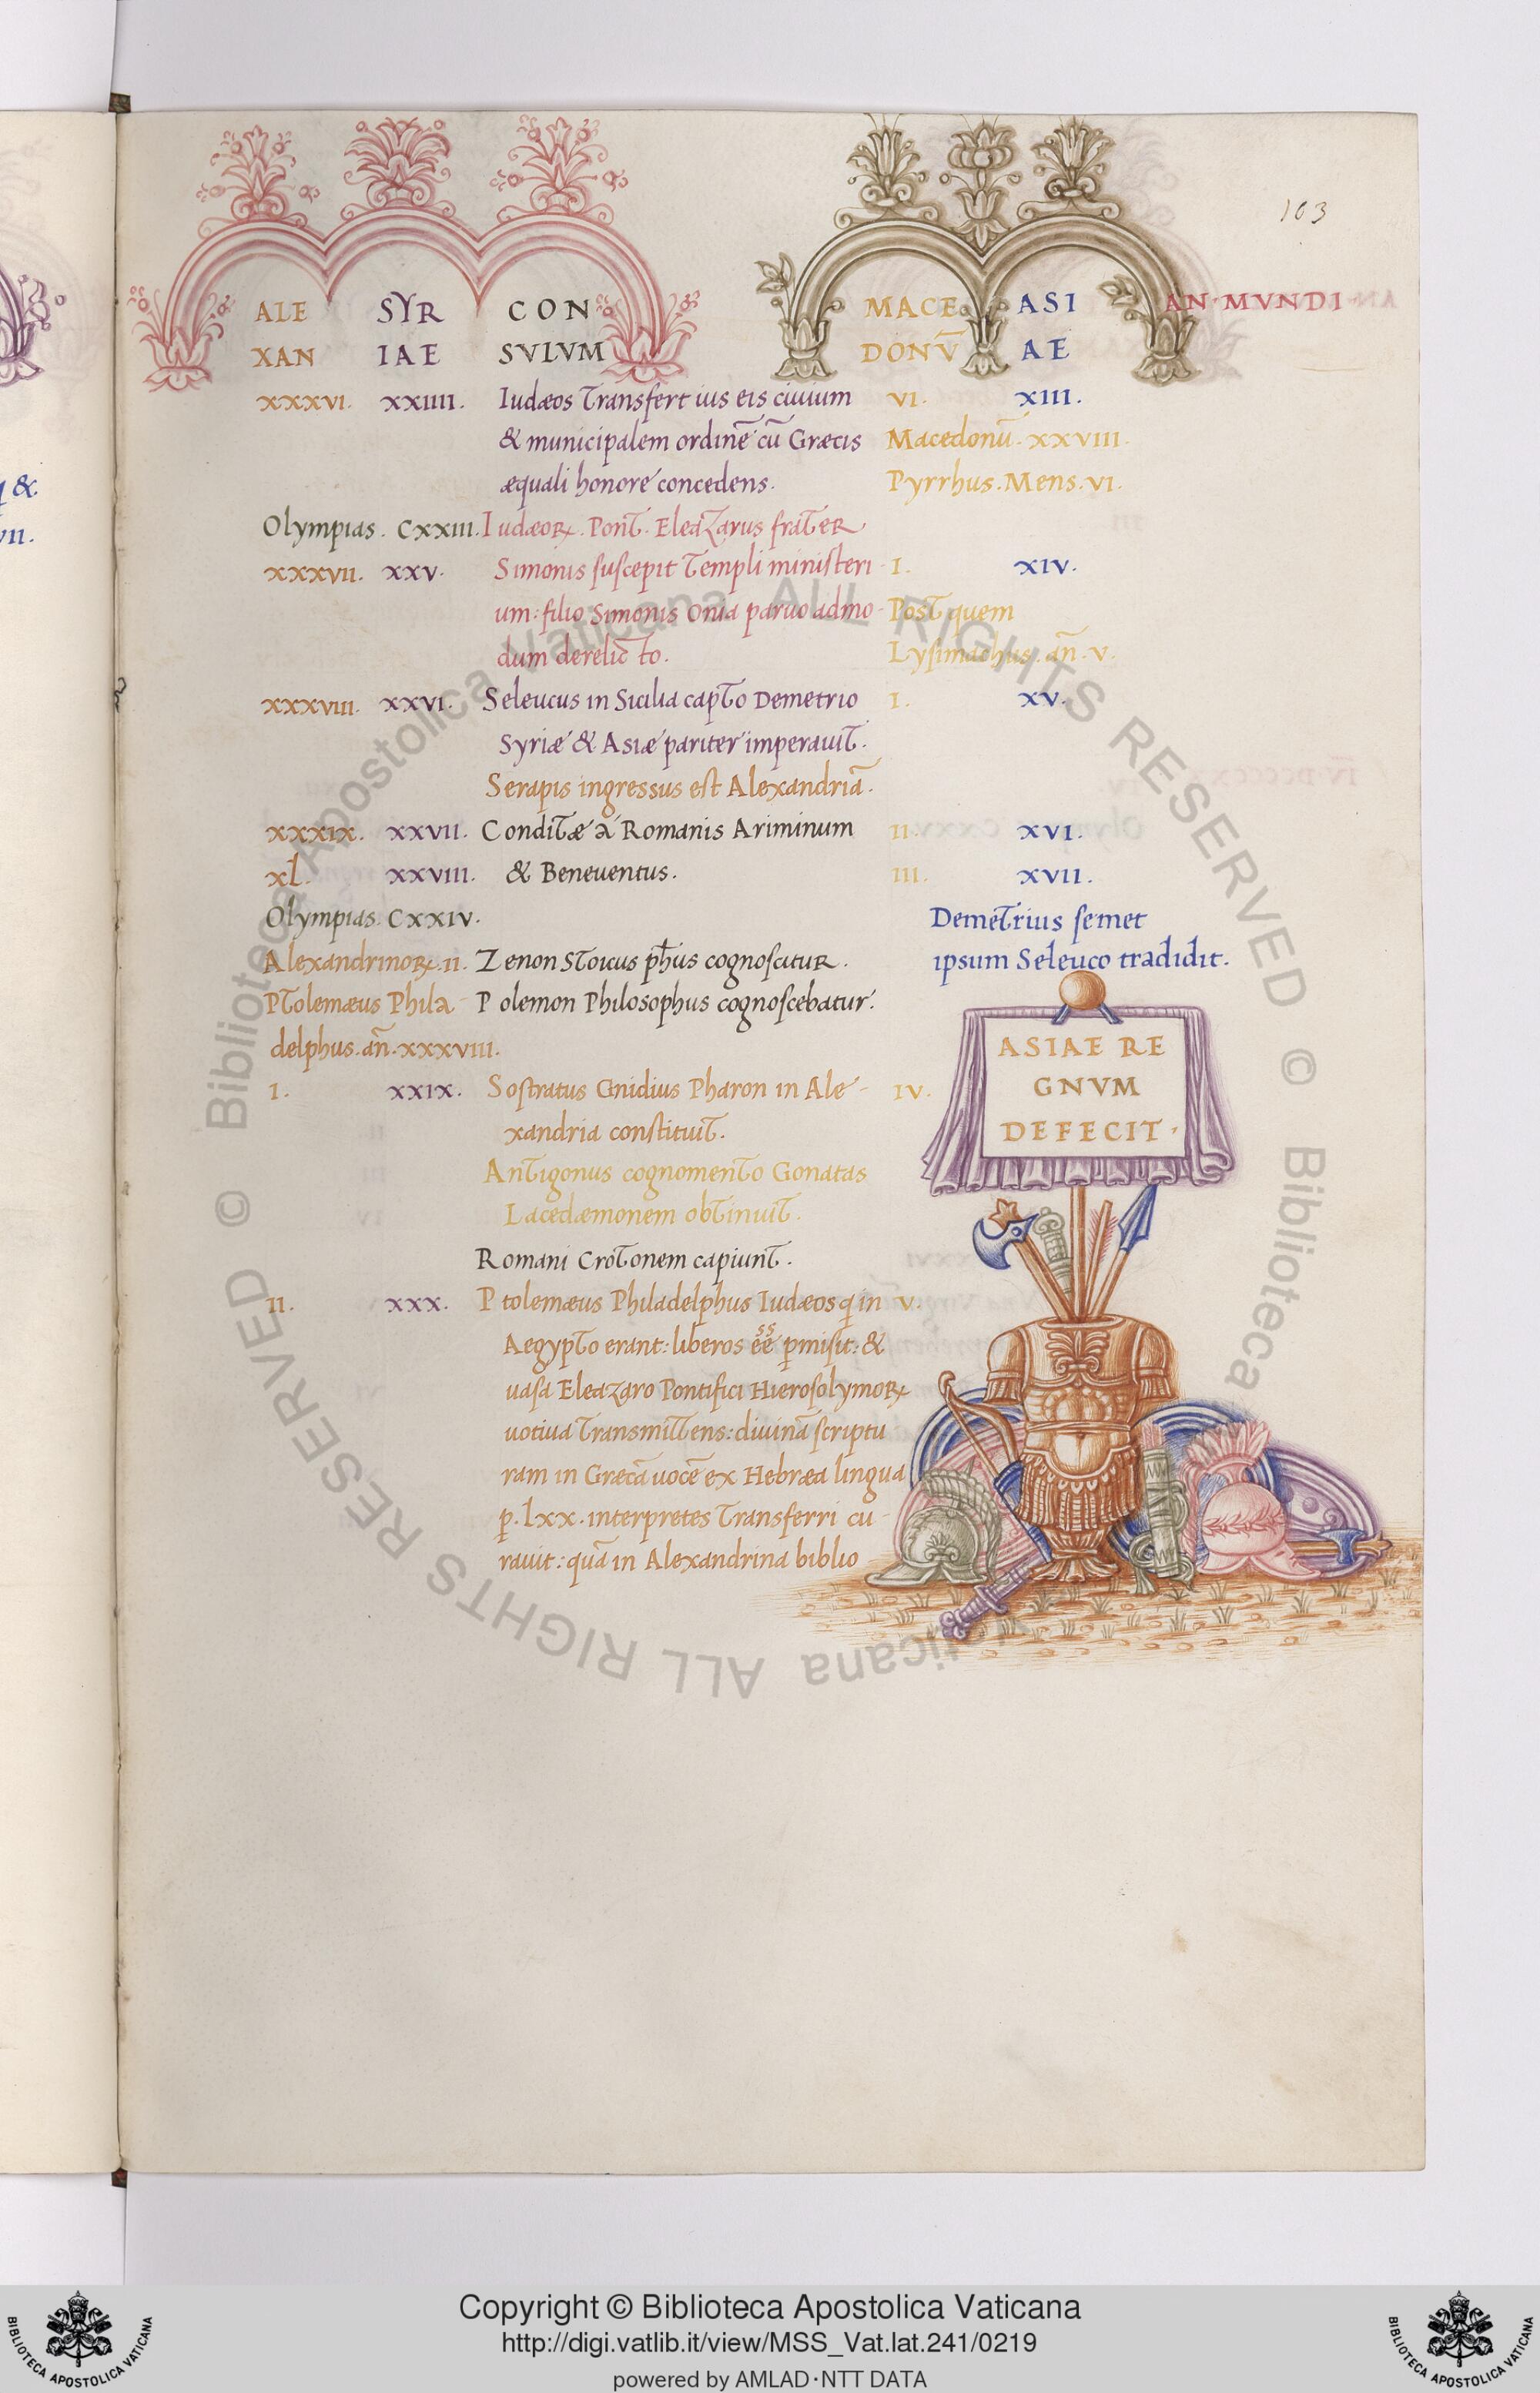 103
ALE SYR CON MACE ASI AN·MVNDI
XAN IAE SVLVM DONV̄ AE
XXXVI. XXIIII. Iudæos Transfert ius eis ciuium VI. XIII.
& municipalem ordinē cū Græcis Macedonū. XXVIII.
æquali honore concedens. Pyrrhus. Mens. VI.
Olympias. CXXIII. Iudæoꝝ. Pont. Eleazarus frater
XXXVII. XXV. Simonis ſuſcepit Templi miniſteri I. XIV.
um: filio Simonis Onia paruo admo Post quem
dum derelicto. Lyſimachus. an̄. V.
XXXVIII. XXVI. Seleucus in Sicilia capto Demetrio I. XV.
Syriæ & Asiæ pariter imperauit.
Serapis ingressus eſt Alexandriā.
XXXIX. XXVII. Conditæ a Romanis Ariminum II. XVI.
xl. XXVIII. & Beneuentus. III. XVII.
Olympias. CXXIV. Demetrius ſemet
Alexandrinoꝝ. II. Zenon Stoicus ph̄us cognoſcitur. ipsum Seleuco tradidit.
Ptolemæus Phila Polemon Philosophus cognoſcebatur.
delphus. an̄. XXXVIII.
ASIAE RE
GNVM
DEFECIT·
I. XXIX. Soſtratus Gnidius Pharon in Ale- IV.
xandria conſtituit.
Antigonus cognomento Gonatas
Lacedæmonem obtinuit.
Romani Crotonem capiunt.
II. XXX. Ptolemæus Philadelphus Iudæos q in V.
Aegypto erant: liberos eēē pmisit: &
uaſa Eleazaro Pontifici Hieroſolymoꝝ
uotiua Transmittens: diuinā ſcriptu
ram in Græcā uocē ex Hebræa lingua
ꝑ. lxx. interpretes Transferri cu-
rauit: quā in Alexandrina biblio
q &
VII.
Copyright © Biblioteca Apostolica Vaticana
http://digi.vatlib.it/view/MSS_Vat.lat.241/0219
powered by AMLAD·NTT DATA
BIBLIOTECA APOSTOLICA VATICANA
BIBLIOTECA APOSTOLICA VATICANA
© Biblioteca Apostolica Vaticana ALL RIGHTS RESERVED
© Biblioteca Vaticana ALL RIGHTS RESERVED